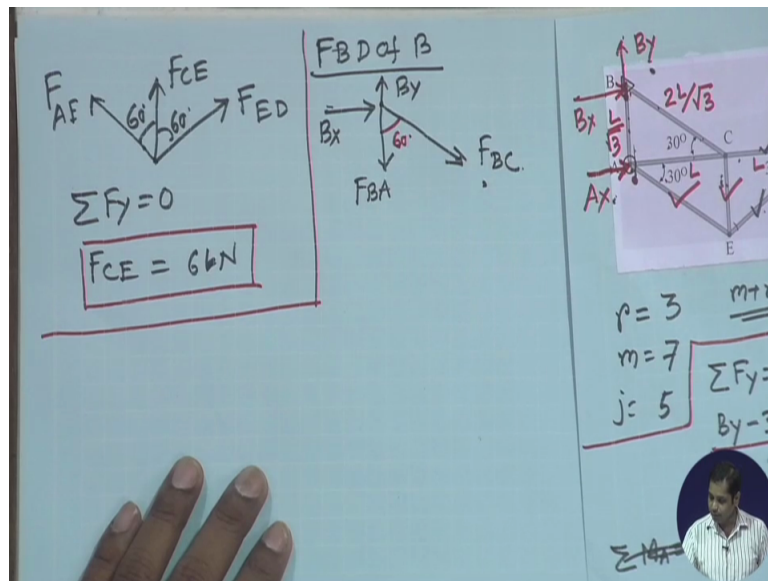 F_AE
F_CE
F_ED
60°
60°
ΣFy = 0
F_CE = 6kN
FBD of B
By
Bx
60°
F_BA
F_BC
By
B
2L/√3
Bx
L/√3
30°
C
30°
L
Ax
E
r = 3
m = 7
j = 5
ΣFy =
By -